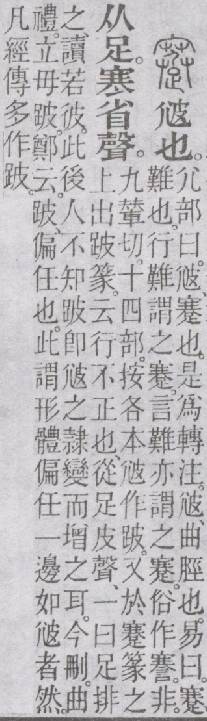 蹇𡯁也。尢部曰。𡯁、蹇也。是爲轉注。𡯁、曲脛也。易曰。蹇
難也。行難謂之蹇。言難亦謂之蹇。俗作謇。非。
从足。寒省聲。九輦切。十四部。按各本𡯁作跛。又於蹇篆之
上出跛篆。云行不正也。從足皮聲。一曰足排
之。讀若彼。此後人不知跛卽𡯁之隷變而增之耳。今刪。曲
禮。立毋跛。鄭云。跛、偏任也。此謂形體偏任一邊如𡯁者然。
凡經傳多作跛。